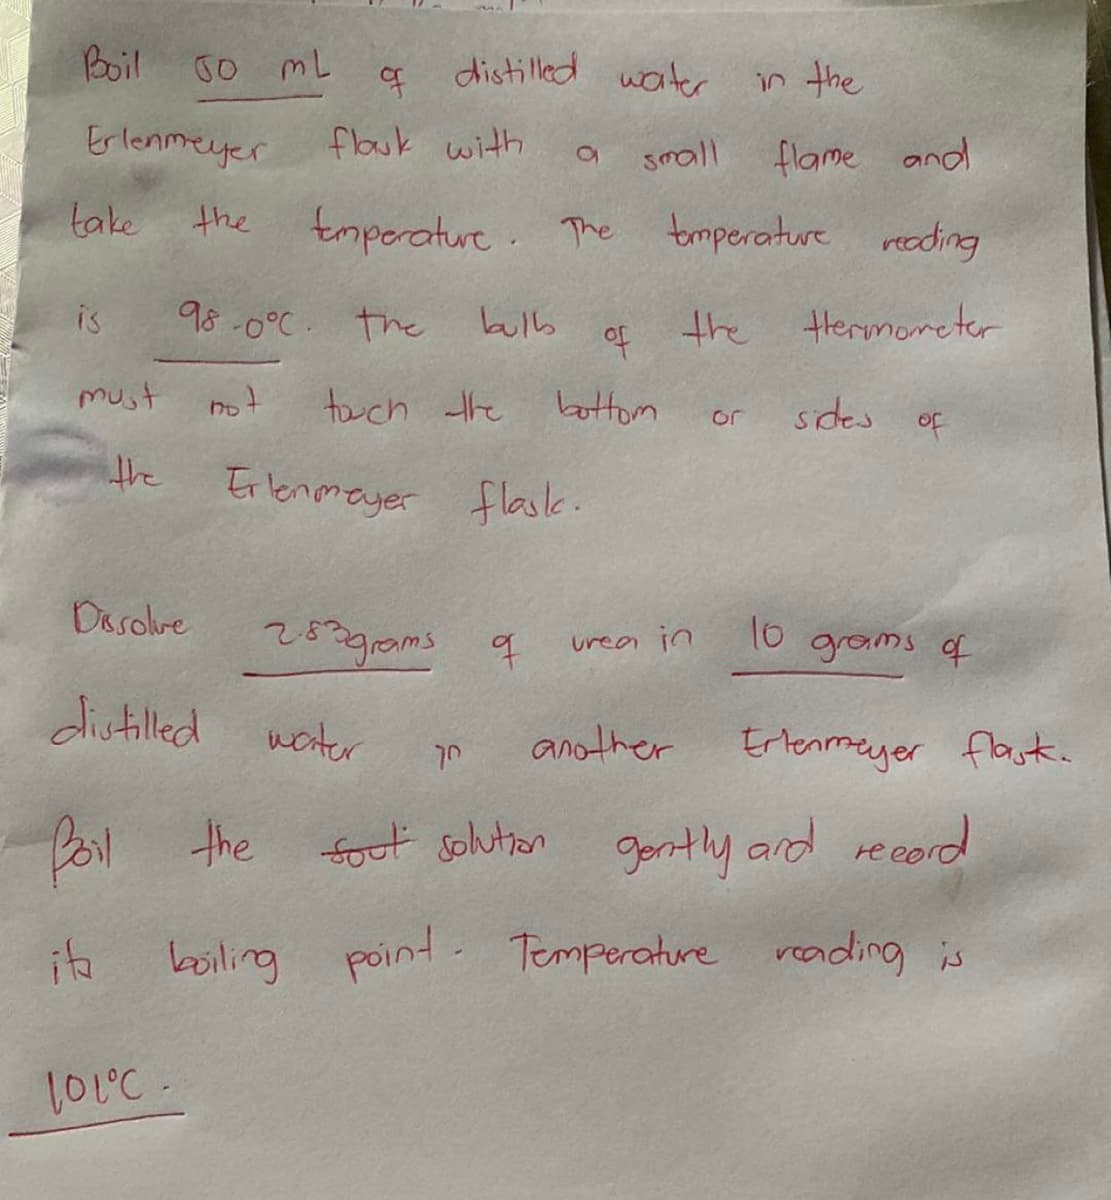 Boil 50 mL of distilled water in the
Erlenmeyer flask with a small flame and
take the temperature. The temperature reading
is 98.0°C. The bulb of the thermometer
must not touch the bottom or sides of
the Erlenmeyer flask.
Dissolve 2.83 grams of urea in 10 grams of
distilled water in another Erlenmeyer flask.
Boil the solution gently and record
its boiling point. Temperature reading is
101°C.